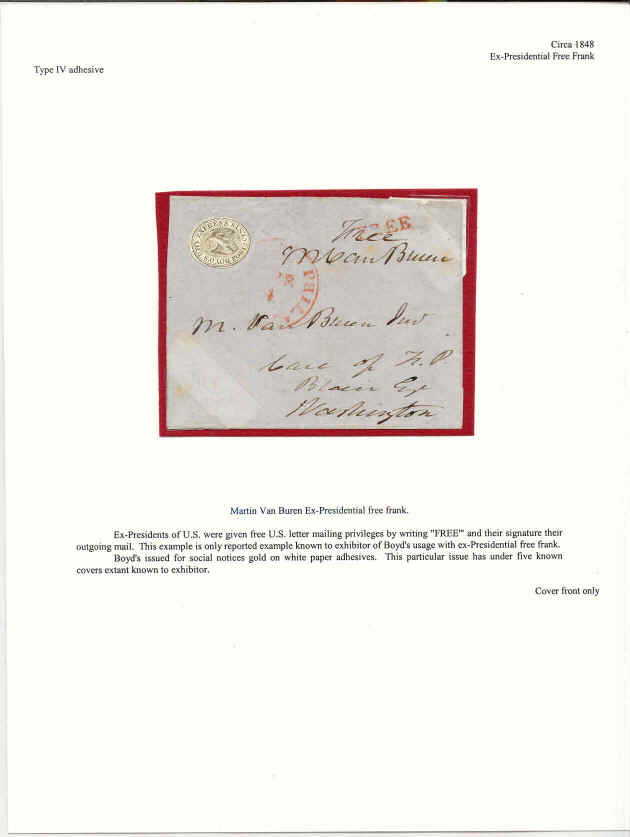 Circa 1848
Ex-Presidential Free Frank
Type IV adhesive
FREE
Free
MVan Buren
M. Van Buren Jur
Care of F. P.
Blair Esq
Washington
Martin Van Buren Ex-Presidential free frank.
Ex-Presidents of U.S. were given free U.S. letter mailing privileges by writing "FREE" and their signature their
outgoing mail. This example is only reported example known to exhibitor of Boyd's usage with ex-Presidential free frank.
Boyd's issued for social notices gold on white paper adhesives. This particular issue has under five known
covers extant known to exhibitor.
Cover front only